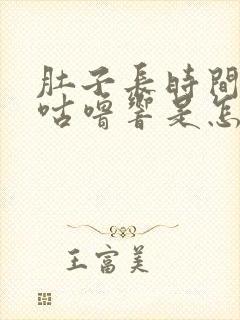 肚子長時間
咕嚕響是怎
王富美